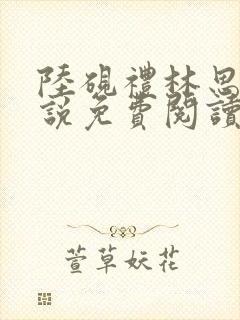 陸硯禮林思
說免費閱讀
萱草妖花